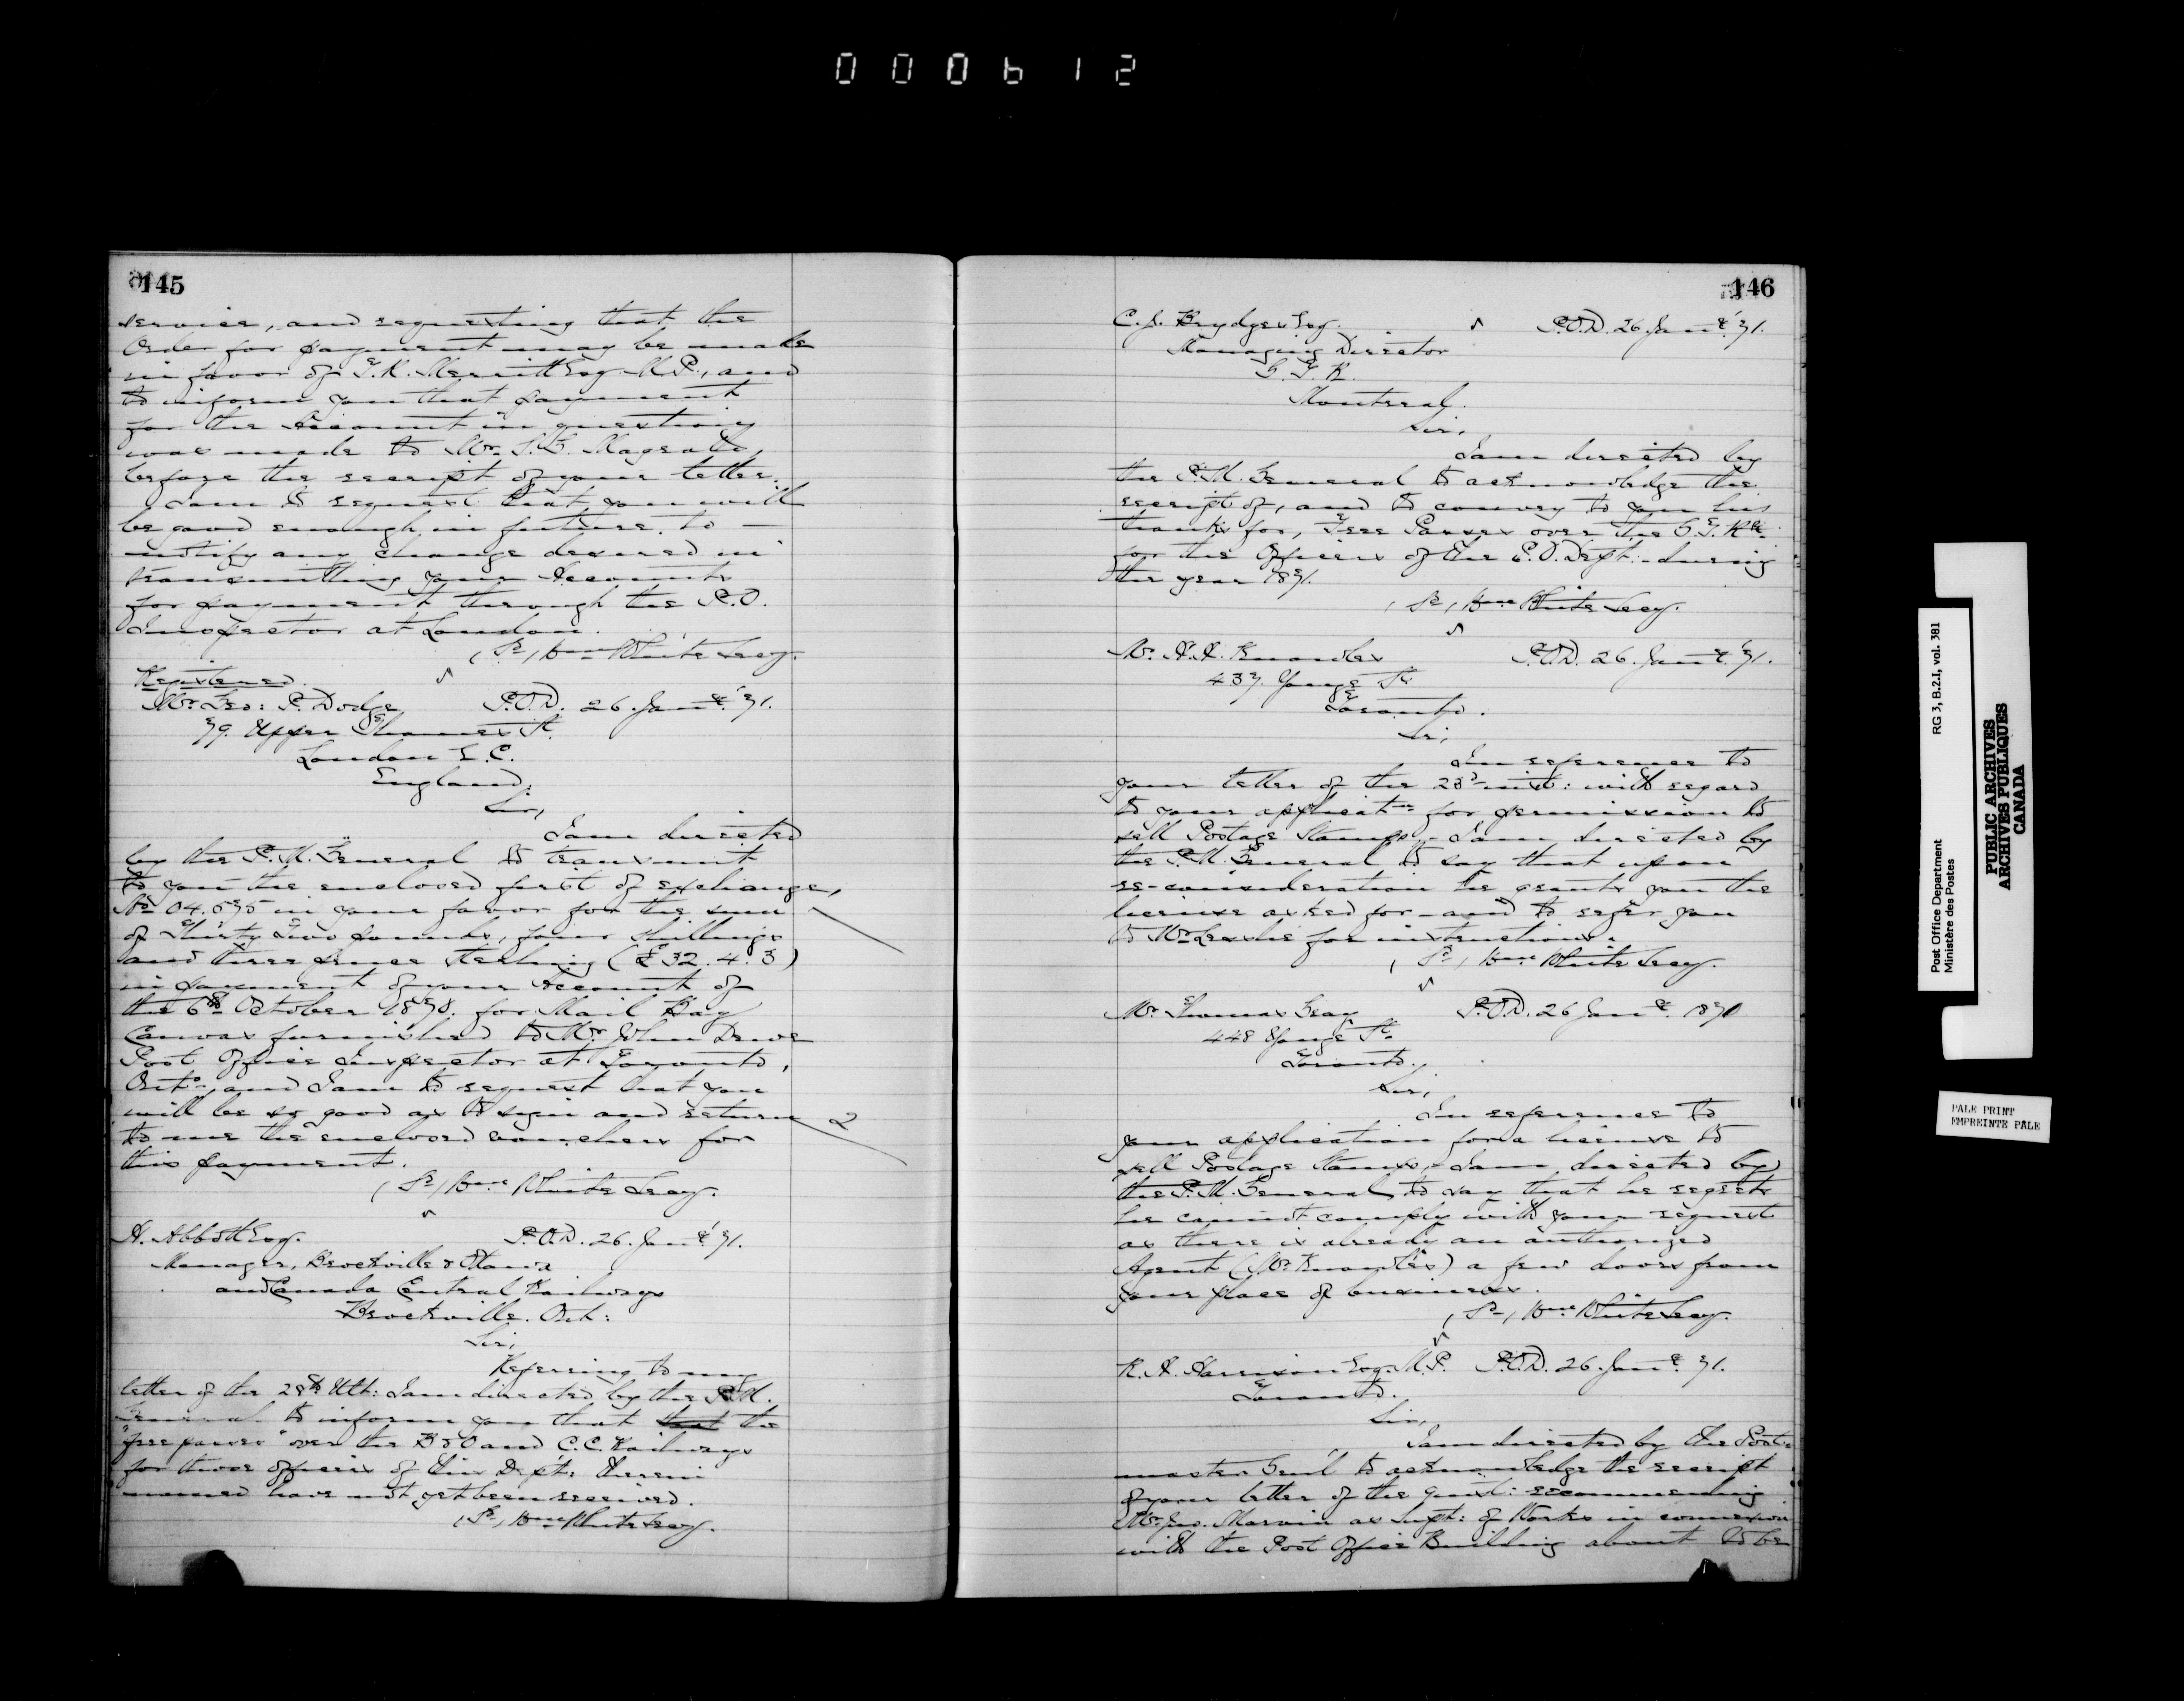 000612
145
service, and requesting that the
Order for payment may be made
in favor of T. R. Merritt Esq. M.P., and
to inform you that payment
for the Account in question
was made to Mr. S. G. Magrath,
before the receipt of your letter.
I am to request that you will
be good enough in future to —
notify any change desired in
transmitting your Accounts
for payment through the P.O.
Inspector at London.
(Sd) Wm White Secy.
Registered.
Mr. Geo: P. Dodge P.O.D. 26. Jany. '71.
79. Upper Thames St.
London E.C.
England.
Sir,
I am directed
by the P. M. General to transmit
to you the enclosed first of exchange,
No 04.575 in your favor for the sum
of Thirty Two pounds, four shillings
and three pence sterling (£32. 4. 3)
in payment of your Account of
the 6th October 1870. for Mail Bag
Canvas furnished to Mr. John Dewe
Post Office Inspector at Toronto,
Onto. and I am to request that you
will be so good as to sign and return 2
to me the enclosed vouchers for
this payment.
(Sd) Wm White Secy.
H. Abbott Esq. P.O.D. 26. Jany. '71.
Manager, Brockville & Ottawa
and Canada Central Railways
Brockville. Ont:
Sir,
Referring to my
letter of the 28th Ult: I am directed by the P.M.
General to inform you that that the
"free passes" over the B & O and C.C. Railways
for those officers of this Dept: therein
named have not yet been received.
(Sd) Wm White Secy.
146
C. J. Brydges Esq. P.O.D. 26. Jany. '71.
Managing Director
G. T. R.
Montreal.
Sir,
I am directed by
the P. M. General to acknowledge the
receipt of, and to convey to you his
thanks for, Free Passes over the G. T. Rlz.
for the Officers of the P.O. Dept: during
the year 1871.
(Sd) Wm White Secy.
Mr. A. A. Knowles P.O.D. 26. Jany. '71.
437. Yonge St.
Toronto.
Sir,
In reference to
your letter of the 23d inst: with regard
to your applicatn for permission to
sell Postage Stamps, I am directed by
the P. M. General to say that upon
re-consideration he grants you the
license asked for - and to refer you
to Mr Leslie for instructions.
(Sd) Wm White Secy.
Mr. Thomas Gray P.O.D. 26 Jany. 1871
448 Yonge St.
Toronto.
Sir,
In reference to
your application for a license to
sell Postage Stamps, I am directed by
the P. M. General to say that he regrets
he cannot comply with your request
as there is already an authorized
Agent (Mr Knowles) a few doors from
your place of business.
(Sd) Wm White Secy.
R. A. Harrison Esq. M.P. P.O.D. 26. Jany. 71.
Toronto.
Sir,
I am directed by the Post-
master Genl to acknowledge the receipt
of your letter of the 9 inst: recommending
Mr. Jno. Marvin as Supt: of Works in connexion
with the Post Office Building about to be
Post Office Department RG 3, B.2.I, vol. 381
Ministère des Postes
PUBLIC ARCHIVES
ARCHIVES PUBLIQUES
CANADA
PALE PRINT
EMPREINTE PALE